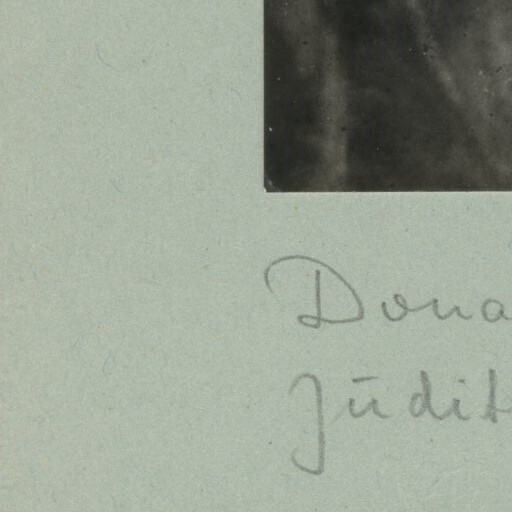 Dona
Judit